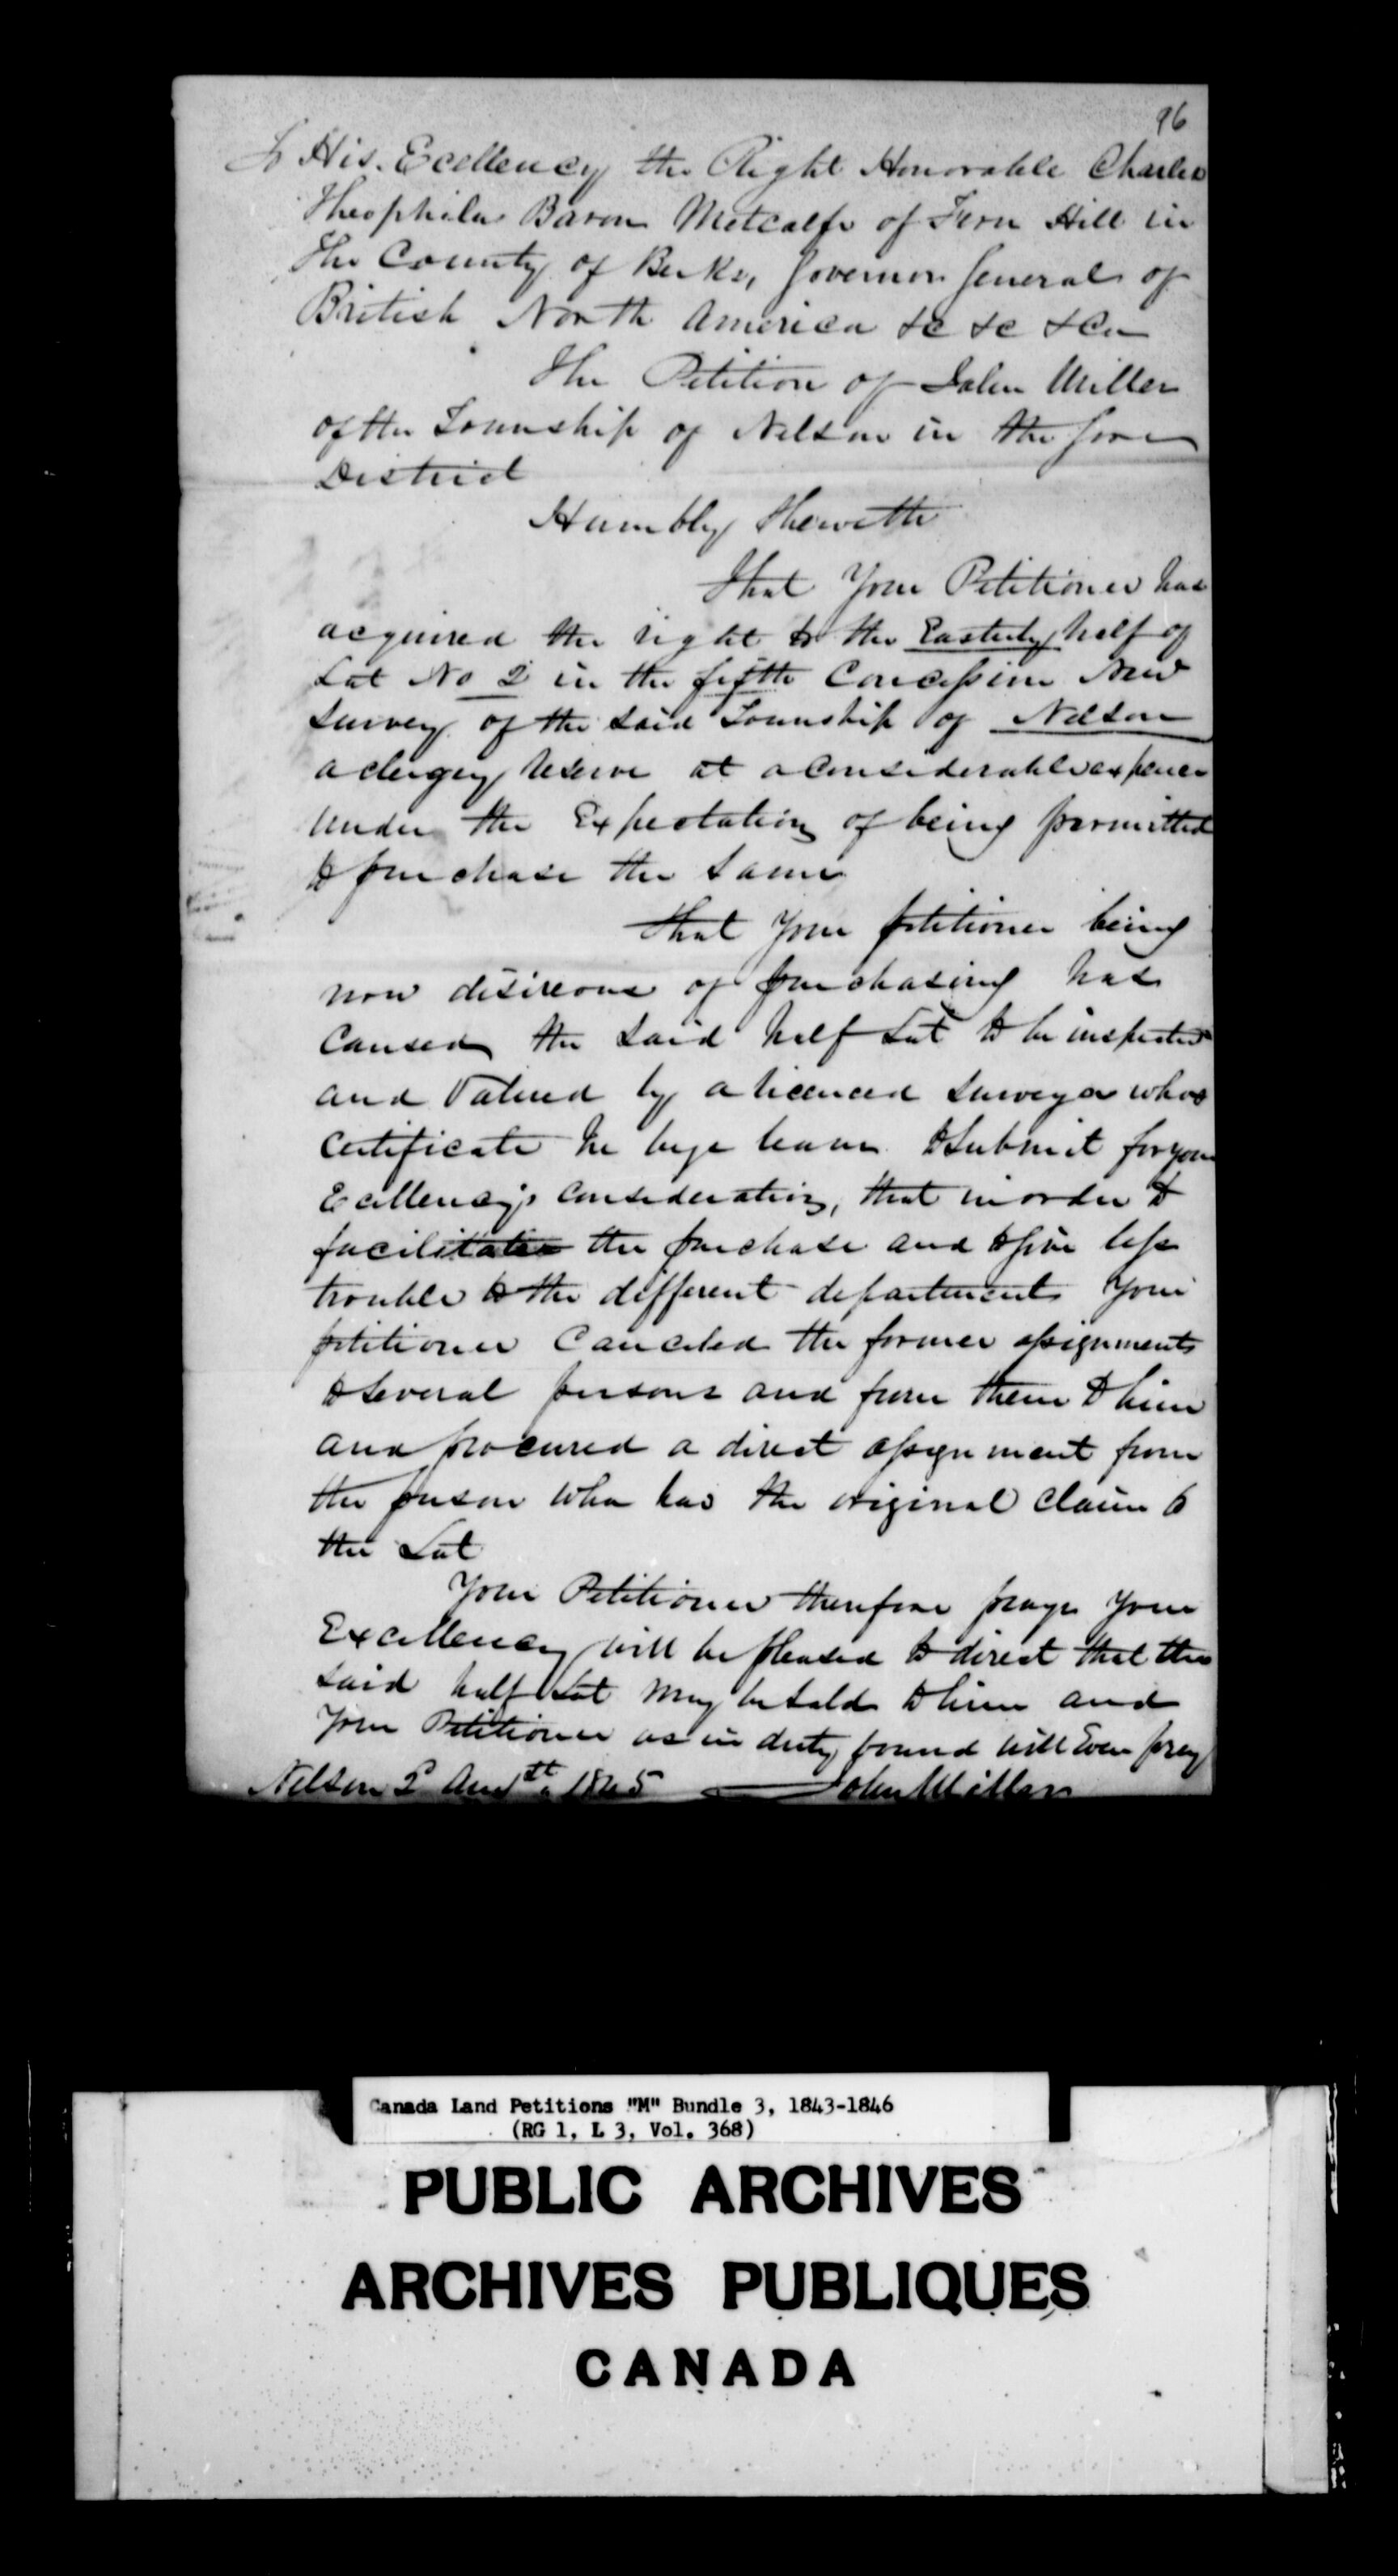 96
To His Ecellency the Right Honorable Charles
Theophilus Baron Metcalfe of Fern Hill in
the County of Berks, Governor General of
British North America &c &c &c
The Petition of John Miller
of the Township of Nelson in the Gore
District
Humbly Sheweth
That Your Petitioner has
acquired the right to the Easterly half of
Lot No 2 in the fifth Concession New
Survey of the said Township of Nelson
a clergy reserve at a Considerable expence
under the Expectation of being permitted
to purchase the same
That Your petitioner being
now desireous of purchasing has
Caused the said half Lot to be inspected
and Valued by a licenced Surveyor whos
Certificate he begs leave to Submit for your
Ecellency's Consideration, that in order to
facilitate the purchase and to give less
trouble to the different departments Your
petitioner Canceled the former assignments
to several persons and from them to him
and procured a direct assignment from
the person who has the original claim to
the Lot
Your Petitioner therefore prays Your
Excellency will be pleased to direct that the
said half Lot may be Sold to him and
Your Petitioner as in duty bound will Ever pray
Nelson 1845 John Miller
Canada Land Petitions "M" Bundle 3, 1843-1846
(RG 1, L 3, Vol. 368)
PUBLIC ARCHIVES
ARCHIVES PUBLIQUES
CANADA